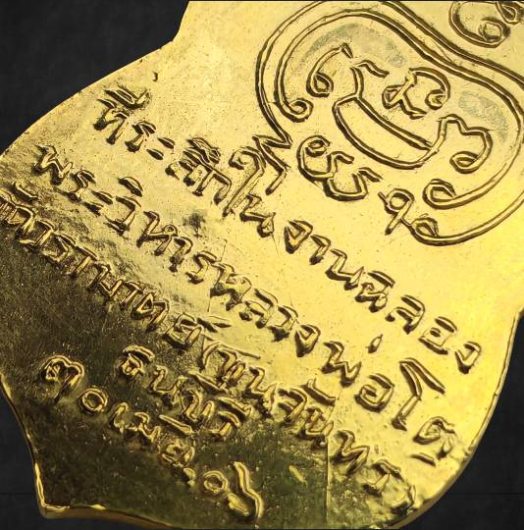 ที่ระลึกในงานฉลอง
พระวิหารหลวงพ่อโต
วัดวรามาตย์(ขุนจันทร์
ธนบุรี
๓๐เมย.๐๖